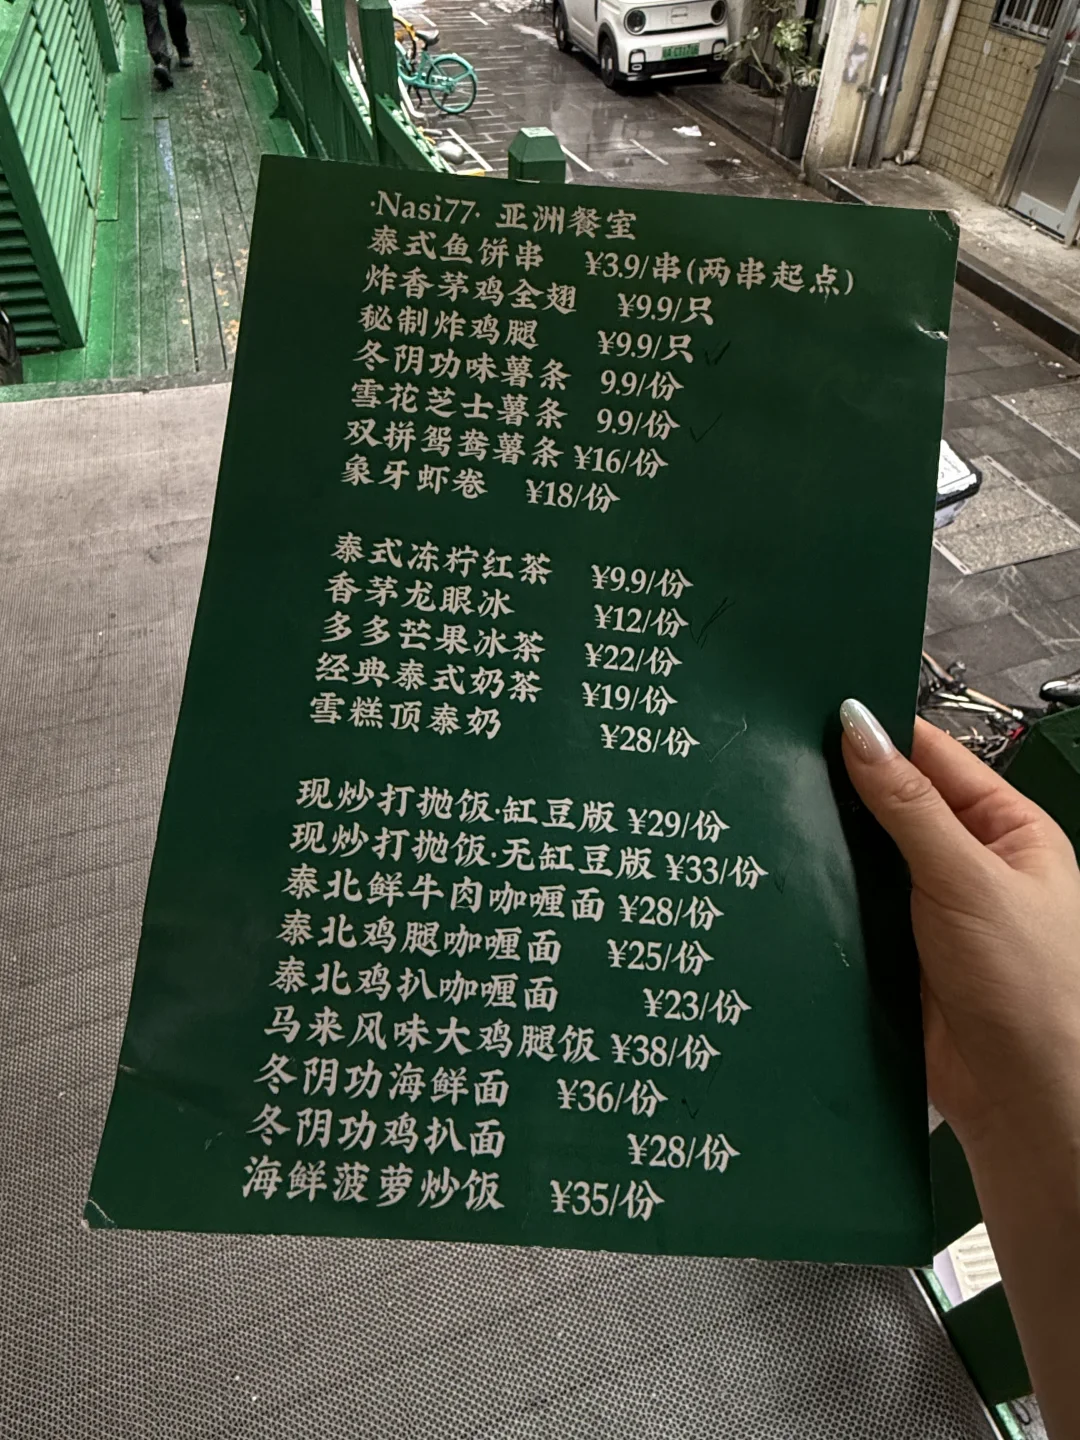 ·Nasi77· 亚洲餐室
泰式鱼饼串 ¥3.9/串(两串起点)
炸香茅鸡全翅 ¥9.9/只
秘制炸鸡腿 ¥9.9/只
冬阴功味薯条 9.9/份
雪花芝士薯条 9.9/份
双拼鸳鸯薯条 ¥16/份
象牙虾卷 ¥18/份
泰式冻柠红茶 ¥9.9/份
香茅龙眼冰 ¥12/份
多多芒果冰茶 ¥22/份
经典泰式奶茶 ¥19/份
雪糕顶泰奶 ¥28/份
现炒打抛饭·缸豆版 ¥29/份
现炒打抛饭·无缸豆版 ¥33/份
泰北鲜牛肉咖喱面 ¥28/份
泰北鸡腿咖喱面 ¥25/份
泰北鸡扒咖喱面 ¥23/份
马来风味大鸡腿饭 ¥38/份
冬阴功海鲜面 ¥36/份
冬阴功鸡扒面 ¥28/份
海鲜菠萝炒饭 ¥35/份